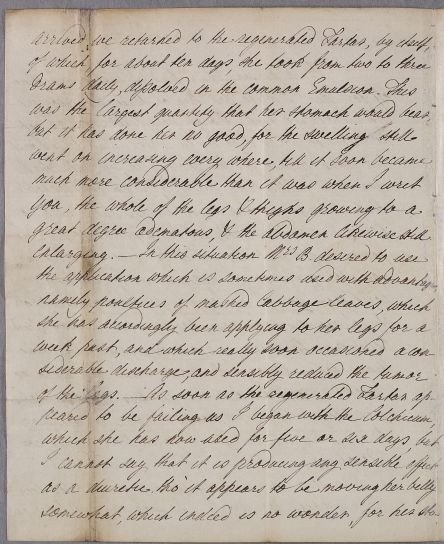 arrived, we returned to the regenerated Tartar, by itself,
of which, for about ten days she took from two to three
Drams daily, dissolved in the common Emulsion. This
was the largest quantity that her stomach would bear,
but it has done her no good, for the swelling still
went on increasing every where, till it soon became
much more considerable than it was when I wrot
you, the whole of the legs & thighs growing to a
great degree œdematous, & the abdomen likewise still
enlarging. — In this situation Mrs B. desired to use
the application which is sometimes used with advantage
namely poultices of mashed Cabbage leaves, which
she has accordingly been applying to her legs for a
week past, and which really soon occasioned a con-
siderable discharge, and sensibly reduced the tumor
of the legs. — As soon as the regenerated Tartar ap-
peared to be failing us I began with the Colchicum,
which she has now used for five or six days, but
I cannot say that it is producing any sensible effect
as a diuretic tho' it appears to be moving her belly
somewhat, which indeed is no wonder, for her sto-